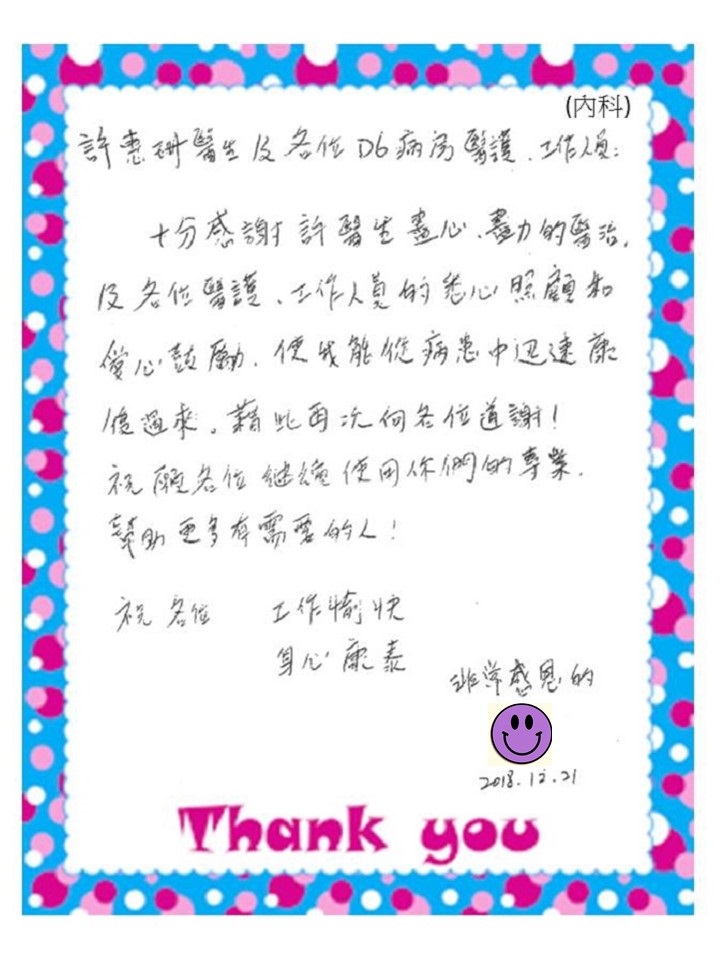 (內科)
許惠研醫生及各位D6病房醫護、工作人員:
十分感謝許醫生盡心、盡力的醫治,
及各位醫護、工作人員的悉心照顧和
愛心鼓勵,使我能從病患中迅速康
復過來。藉此再次向各位道謝!
祝願各位繼續使用你們的專業,
幫助更多有需要的人!
祝各位 工作愉快
身心康泰
非常感恩的
2018.12.21
Thank you